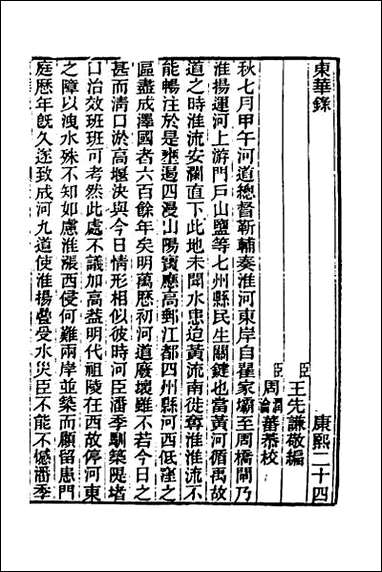 東華錄 康熙二十四
臣王先謙敬編
臣周潤蕃周瀹蕃恭校
秋七月甲午河道總督靳輔奏淮河東岸自翟家壩至周橋閘乃
淮揚運河上游門戶山鹽等七州縣民生關鍵也當黃河循禹故
道之時淮流安瀾直下此地未聞水患迨黃流南徙奪淮淮流不
能暢注於是壅遏四漫山陽寶應高郵江都四州縣河西低窪之
區盡成澤國者六百餘年矣明萬歷初河道廢壞雖不若今日之
甚而清口淤高堰決與今日情形相似彼時河臣潘季馴築隄堵
口治效班班可考然此處不議加高益明代祖陵在西故停河東
之障以洩水殊不知如慮淮漲西侵何難兩岸並築而顧留患門
庭歷年旣久遂致成河九道使淮揚疊受水災臣不能不憾潘季